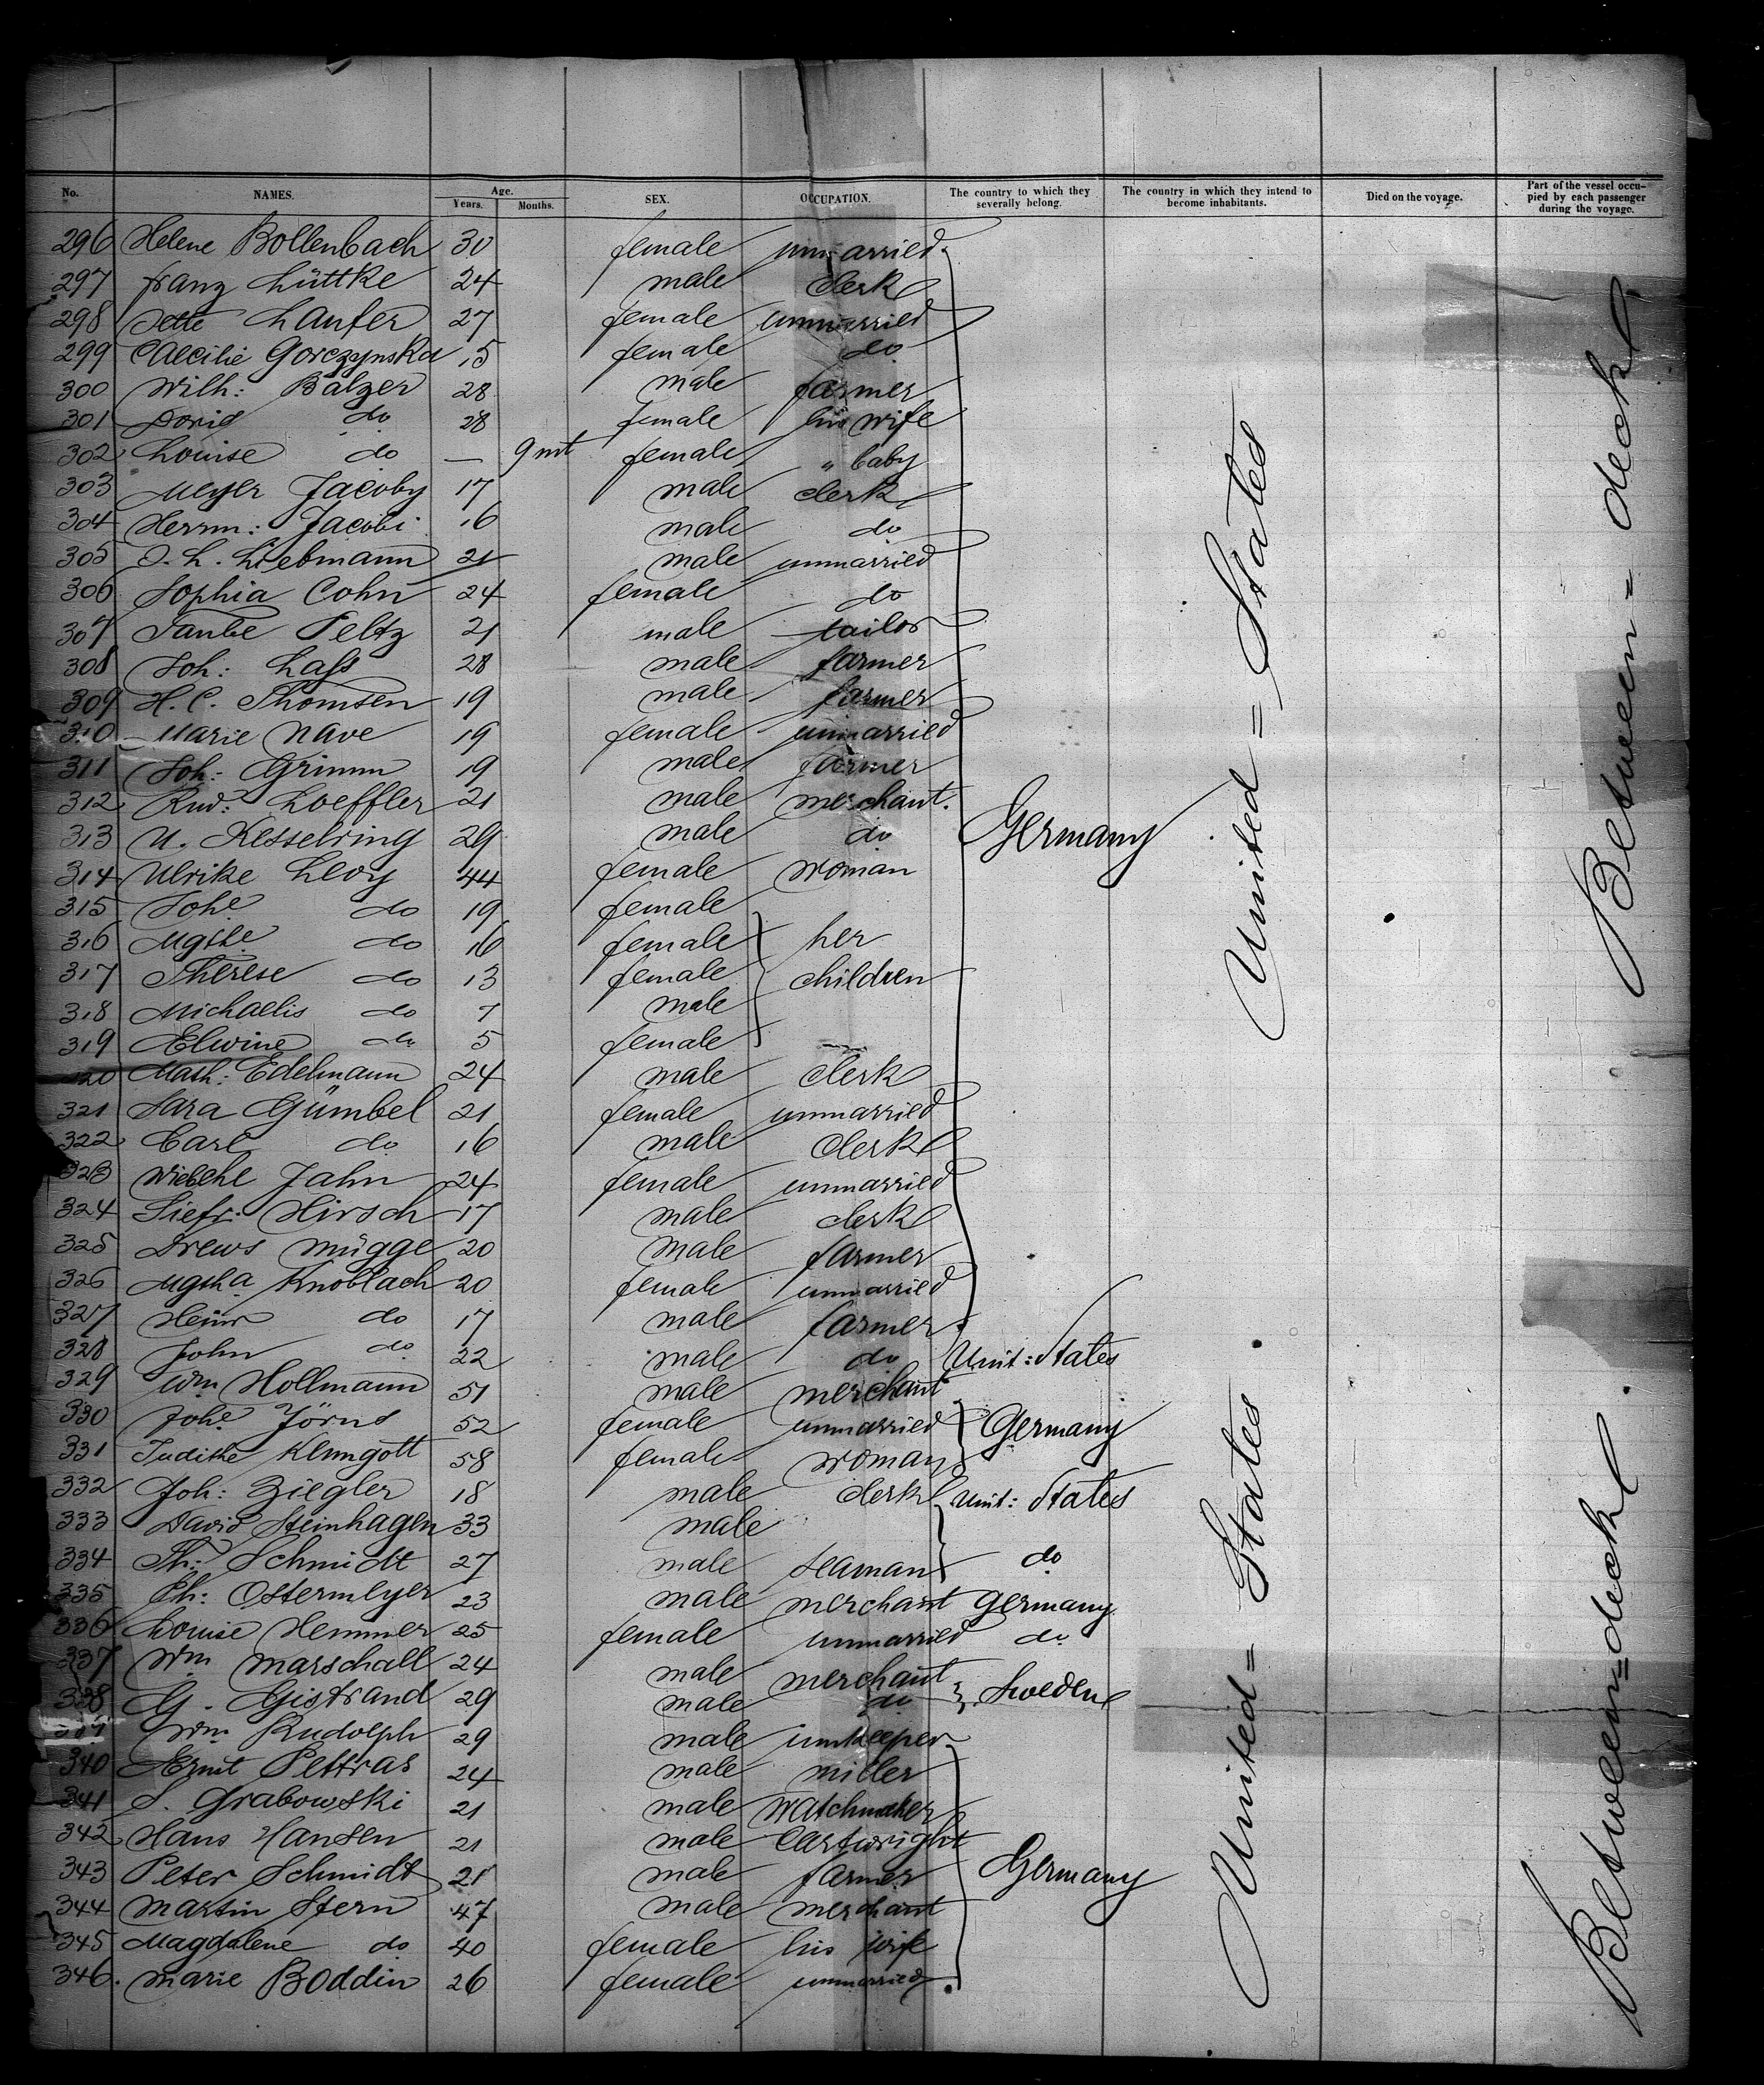 No. NAMES. Age. Years. Months. SEX. OCCUPATION. The country to which they severally belong. The country in which they intend to become inhabitants. Died on the voyage. Part of the vessel occupied by each passenger during the voyage.
296 Helene Bollenbach 30 female unmarried
297 Franz Lüttke 24 male clerk
298 Jette Laufer 27 female unmarried
299 Caecilie Gorczynska 15 female do
300 Wilh: Balzer 28 male farmer
301 Doris do 28 female his wife
302 Louise do — 9 mt female " baby
303 Meyer Jacoby 17 male clerk
304 Herrm: Jacobi 16 male do
305 J. L. Liebmann 21 male unmarried
306 Sophia Cohn 24 female do
307 Taube Peltz 21 male tailor
308 Joh: Lass 28 male farmer
309 H. C. Thomsen 19 male farmer
310 Marie Nave 19 female unmarried
311 Joh: Grimm 19 male farmer
312 Rud: Loeffler 21 male merchant.
313 U. Kesselring 29 male do Germany United = States Between = deck
314 Ulrike Levy 44 female woman
315 Johe do 19 female
316 Mgthe do 16 female her
317 Therese do 13 female children
318 Michaelis do 7 male
319 Elwine do 5 female
320 Math: Edelmann 24 male clerk
321 Sara Gümbel 21 female unmarried
322 Carl do 16 male clerk
323 Wiebche Jahn 24 female unmarried
324 Siefr: Hirsch 17 male clerk
325 Drews Mügge 20 male farmer
326 Mgtha Knoblach 20 female unmarried
327 Heinr do 17 male farmer
328 John do 22 male do Unit: States
329 Wm Hollmann 51 male merchant
330 Johe Jörns 52 female unmarried Germany
331 Judithe Klemgott 58 female woman
332 Joh: Ziegler 18 male clerk Unit: States
333 David Steinhagen 33 male
334 Th: Schmidt 27 male seaman do
335 Ph: Ostermeyer 23 male merchant Germany
336 Louise Hemmer 25 female unmarried do
337 Wm Marschall 24 male merchant
338 G. Gistrand 29 male do Sweden
339 Wm Rudolph 29 male innkeeper
340 Ernst Pettras 24 male miller
341 S. Grabowski 21 male watchmaker
342 Hans Hansen 21 male Cartwright
343 Peter Schmidt 21 male farmer Germany United = States Between = deck
344 Martin Stern 47 male merchant
345 Magdalene do 40 female his wife
346. Marie Boddin 26 female unmarried